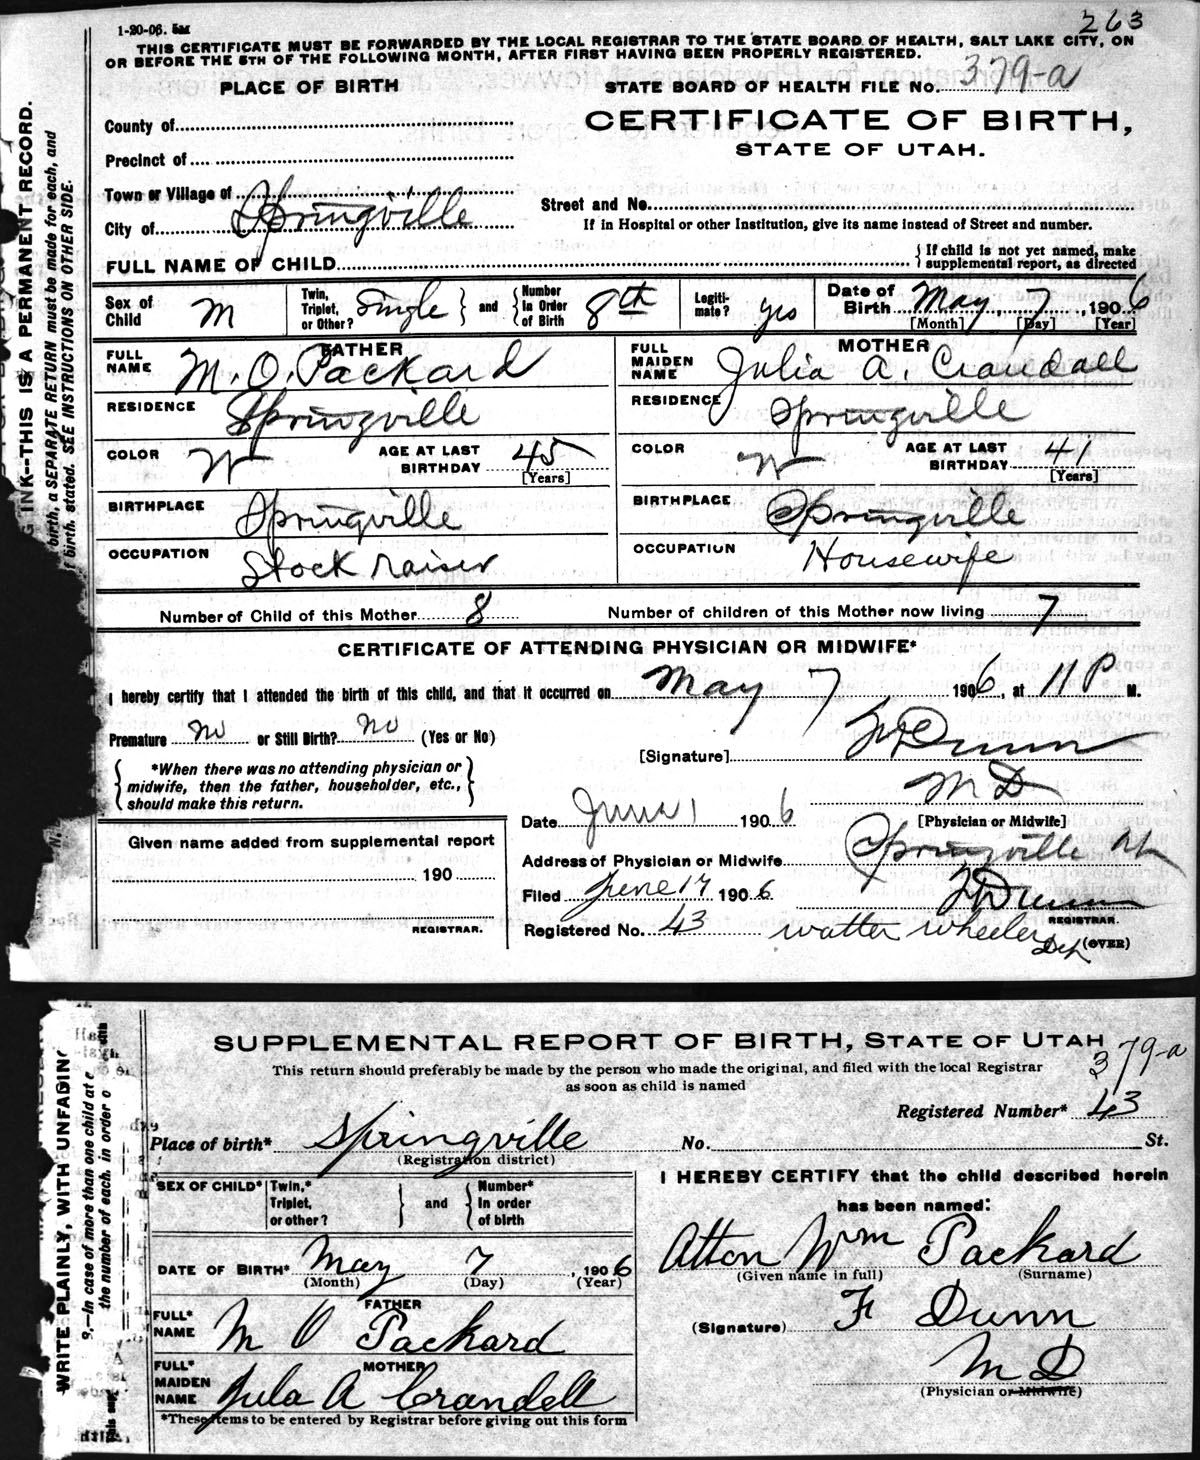 263
1-20-06. 5M
THIS CERTIFICATE MUST BE FORWARDED BY THE LOCAL REGISTRAR TO THE STATE BOARD OF HEALTH, SALT LAKE CITY, ON
OR BEFORE THE 5TH OF THE FOLLOWING MONTH, AFTER FIRST HAVING BEEN PROPERLY REGISTERED.
PLACE OF BIRTH
STATE BOARD OF HEALTH FILE No. 379-a
County of
CERTIFICATE OF BIRTH,
Precinct of
STATE OF UTAH.
Town or Village of
Street and No.
City of Springville
If in Hospital or other Institution, give its name instead of Street and number.
FULL NAME OF CHILD
If child is not yet named, make
supplemental report, as directed
Sex of Child M
Twin, Triplet, or Other? Single and Number In Order of Birth 8th
Legiti-mate? yes
Date of Birth May, 7, 1906
[Month] [Day] [Year]
FATHER
FULL NAME M. O. Packard
MOTHER
FULL MAIDEN NAME Julia A. Crandall
RESIDENCE Springville
RESIDENCE Springville
COLOR W AGE AT LAST BIRTHDAY 45 [Years]
COLOR W AGE AT LAST BIRTHDAY 41 [Years]
BIRTHPLACE Springville
BIRTHPLACE Springville
OCCUPATION Stock raiser
OCCUPATION Housewife
Number of Child of this Mother 8 Number of children of this Mother now living 7
CERTIFICATE OF ATTENDING PHYSICIAN OR MIDWIFE*
I hereby certify that I attended the birth of this child, and that it occurred on May 7, 1906, at 11 P M.
Premature no or Still Birth? no (Yes or No)
[Signature] F Dunn
M D
[Physician or Midwife]
*When there was no attending physician or
midwife, then the father, householder, etc.,
should make this return.
Date June 1 1906
Given name added from supplemental report
190
REGISTRAR.
Address of Physician or Midwife Springville Ut
Filed June 17 1906 F Dunn
REGISTRAR.
Registered No. 43 Walter Wheeler Dep (OVER)
INK--THIS IS A PERMANENT RECORD.
birth, a SEPARATE RETURN must be made for each, and
f birth, stated. SEE INSTRUCTIONS ON OTHER SIDE.
SUPPLEMENTAL REPORT OF BIRTH, STATE OF UTAH
379-a
This return should preferably be made by the person who made the original, and filed with the local Registrar
as soon as child is named
Registered Number* 43
Place of birth* Springville No. St.
(Registration district)
SEX OF CHILD* Twin,* Triplet, or other? and Number* In order of birth
I HEREBY CERTIFY that the child described herein
has been named:
Atton Wm Packard
(Given name in full) (Surname)
DATE OF BIRTH* May 7, 1906
(Month) (Day) (Year)
FATHER
FULL* NAME M O Packard
(Signature) F Dunn
M D
(Physician or Midwife)
MOTHER
FULL* MAIDEN NAME Jula A Crandell
*These items to be entered by Registrar before giving out this form
WRITE PLAINLY, WITH UNFADING
—In case of more than one child at
the number of each, in order o